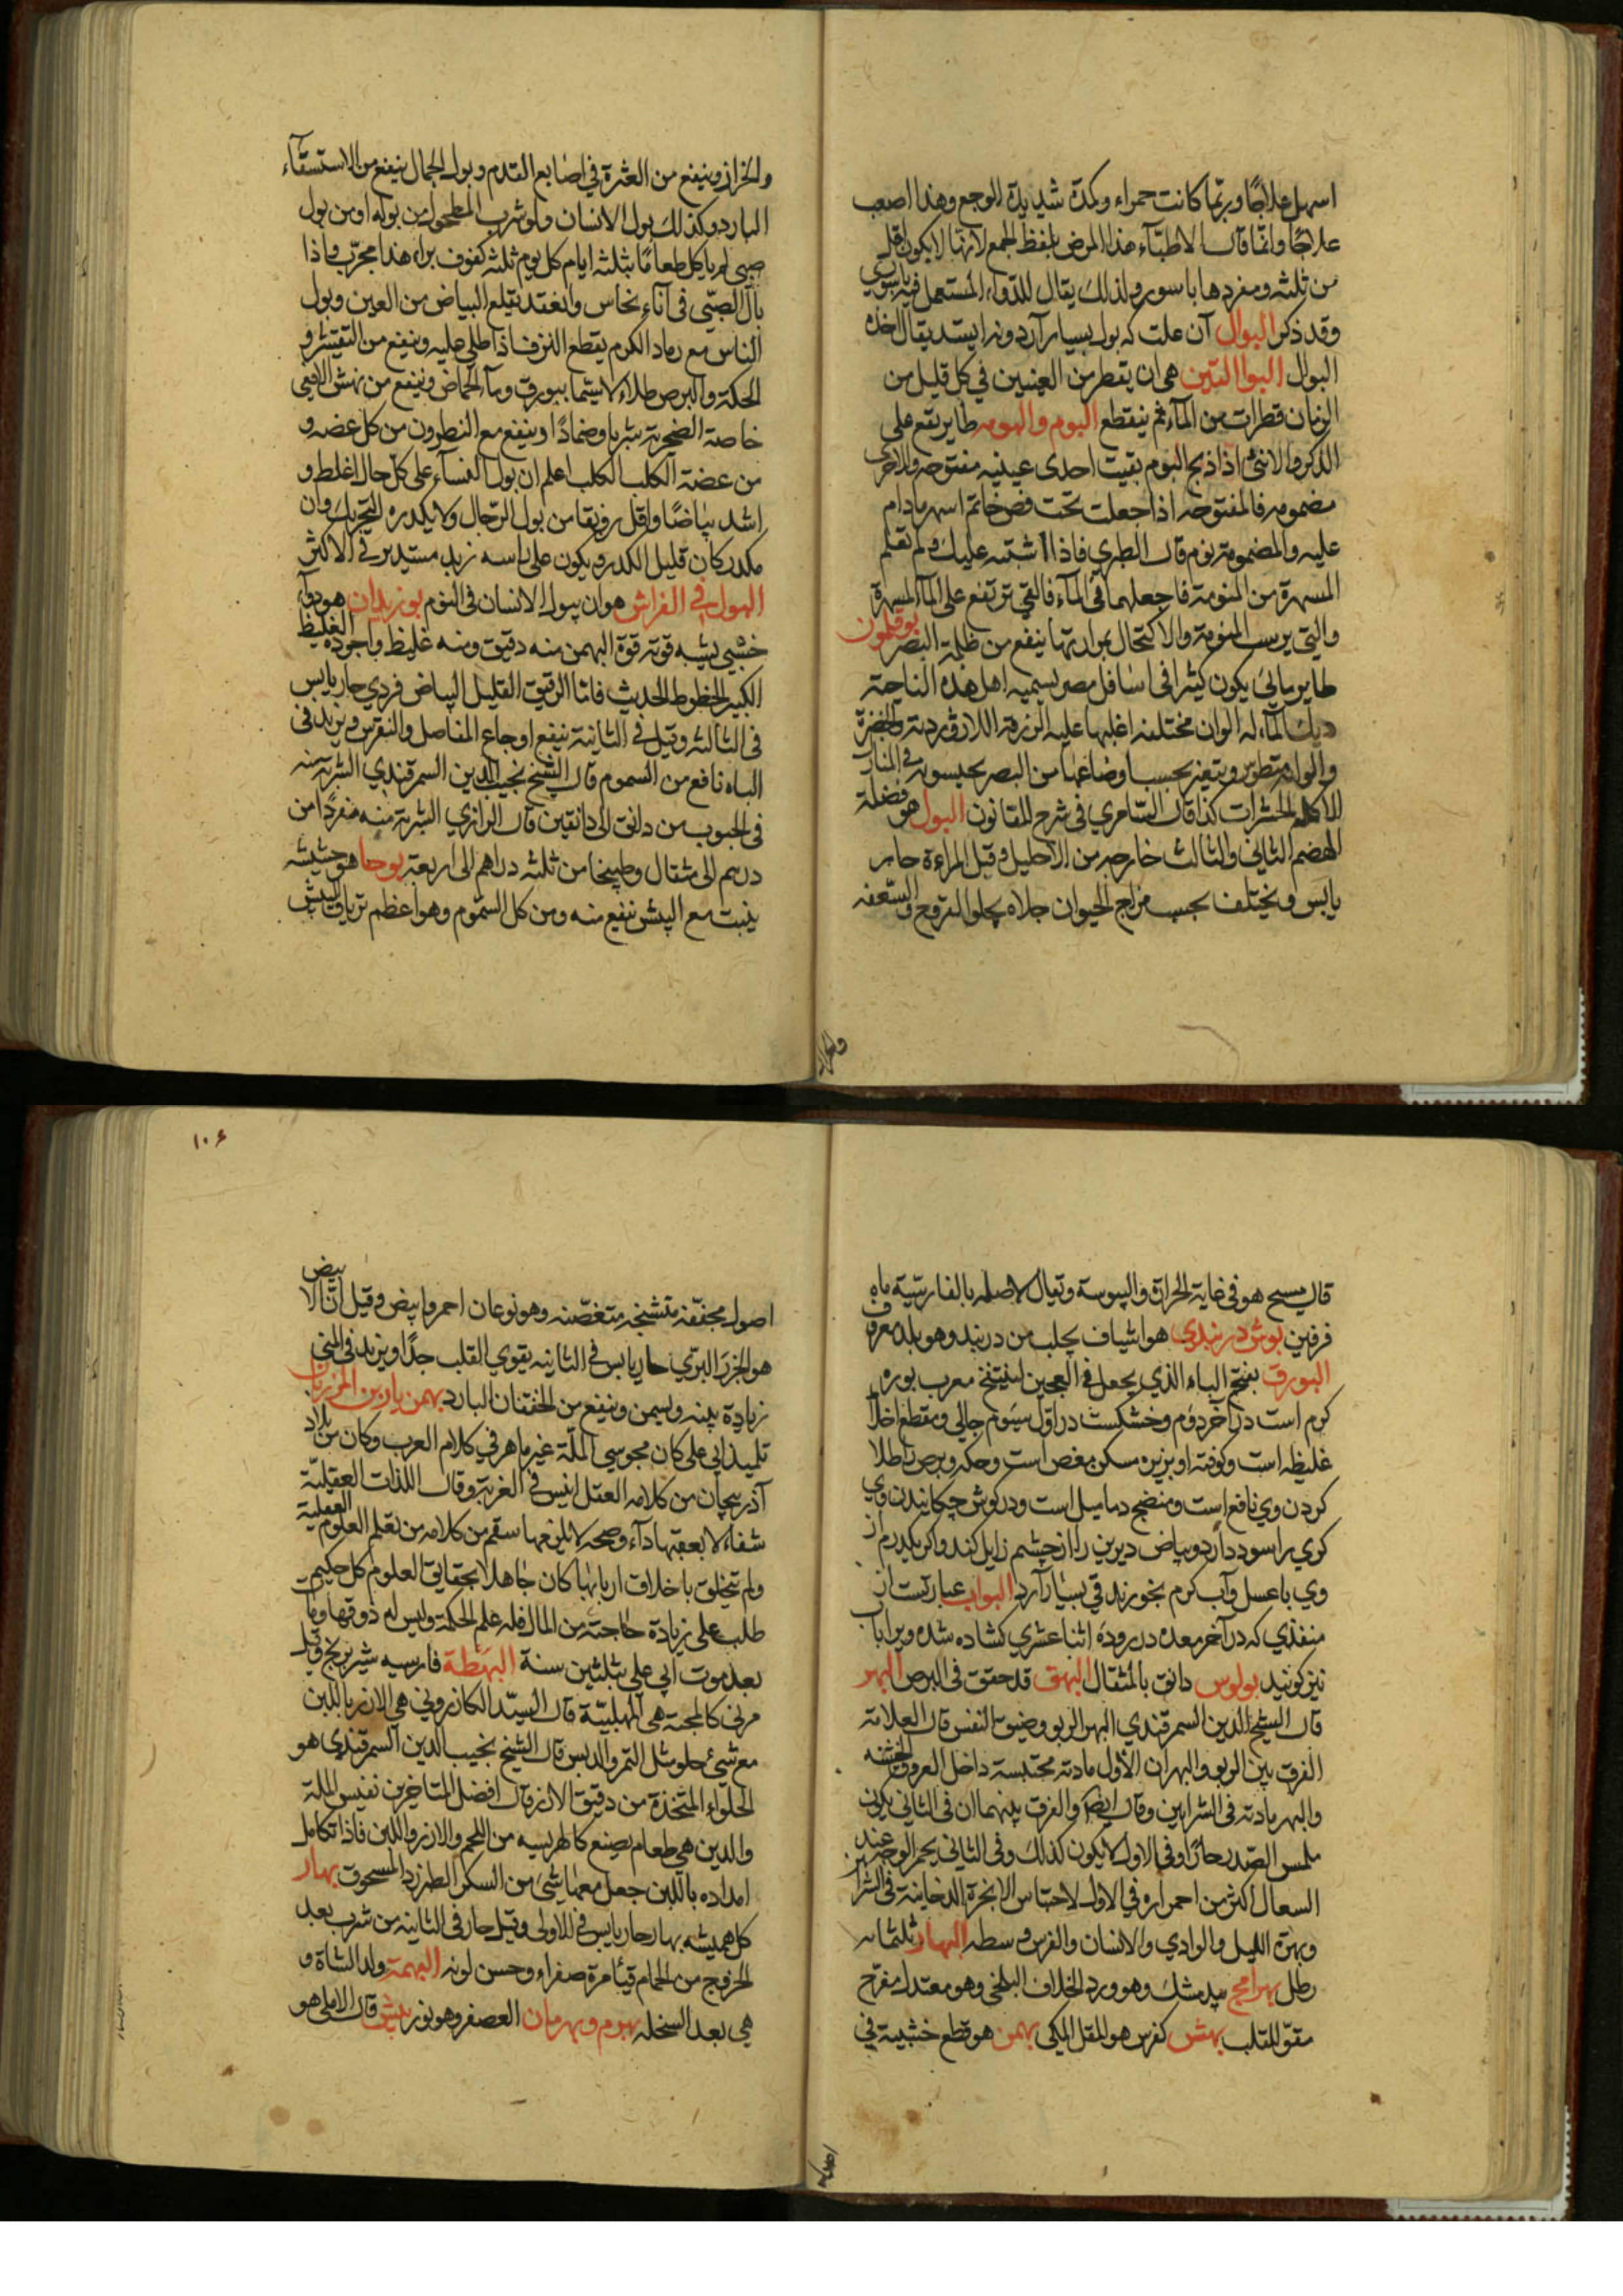 اسهل علاجًا وربّما كانت حمراء وكمدة شديدة الوجع وهذا اصعب
علاجًا وانّما قال الاطبّاء هذا المرض بلفظ الجمع لانها لا يكون اقل
من ثلثه ومفردها باسور ولذلك يقال للدّواء المستعمل فيه باسوري
وقد ذكر البوال آن علت كه بول بسيار آرد ونرا يستد يقال اخذه
البوال البوا التين هى ان يقطر من العينين في كل قليل من
الزمان قطرات من المآء ثم ينقطع البوم والبومه طاير يقع على
الذكر والانثى اذا ذبح البوم بقيت احدى عينيه مفتوحه والاخرى
مضمومه فالمفتوحه اذا جعلت تحت فص خاتم اسهر مادام
عليه والمضمومة نوم قال الطبري فاذا اشتبه عليك ولم تعلم
المسهرة من المنومة فاجعلهما فى المآء فالتى ترتفع على المآء المسهرة
والتى يرسب المنومة والاكتحال بمرارتها ينفع من ظلمة البصر بوقلمون
طاير مائي يكون كثيرا فى اسافل مصر يسميه اهل هذه الناحية
ديك المآء له الوان مختلفه اغلبها عليه الزرقة اللازوردية والخضرة
والوانه تتطور ويتغير بحسب اوضاعها من البصر يحبسونه في المنازل
للاكله الحشرات كذا قال السامري فى شرح للقانون البول هو فضلة
الهضم الثاني والثالث خارجه من الاحليل وقبل المراءة حار
يابس ويختلف بحسب مزاج الحيوان جلاء يجلوا القروح والسّعفه
والحزاز وينفع من العثرة في اصابع القدم وبول الجمال ينفع من الاستسقآء
البارد وكذلك بول الانسان ولو شرب المطحول من بوله او من بول
صبى لم ياكل طعامًا بثلثه ايام كل يوم ثلثه كفوف براه هذا مجرّب واذا
بال الصبّى فى آناء نحاس وانعقد يقلع البياض من العين وبول
الناس مع رماد الكرم يقطع النزف اذا طلى عليه وينفع من التقشر و
الحكة والبرص طلاء لا سيّما ببورق ومآ الحماض وينفع من نهش الافعى
خاصة الصخرية شربا وضمادًا وينفع مع النطرون من كل عضه و
من عضة الكلب الكلب اعلم ان بول النسآء على كل حال اغلط و
اشد بياضًا واقل رونقا من بول الرّجال ولا يكدره التحريك وان
مكدر كان قليل الكدر ويكون على راسه زبد مستدير في الاكثر
البول في الفراش هو ان يبول الانسان فى النوم بوزيدان هو دوآء
خشبي يشبه قوته قوة البهمن منه دقيق ومنه غليظ واجوده الغليظ
الكبير الخطوط الحديث فامّا الرقيق القليل البياض فردي حار يابس
فى الثالثه وقيل في الثانية ينفع اوجاع المفاصل والنقرس ويزيد فى
الباه نافع من السموم قال الشيخ نجيب الدين السمرقندي الشربة منه
فى الحبوب من دانق الى دانقين قال الرازي الشربة منه مفردًا من
درهم الى مثقال وطبيخا من ثلثه دراهم الى اربعة بوحا هو حشيشه
ينبت مع البيش ننفع منه ومن كل السّموم وهو اعظم ترياق البيش
قال مسيح هو في غاية الحرارة واليبوسة ويقال لاصله بالفارسّية ماه
فرفين بوش دربندي هو اشياف يجلب من دربند وهو بلد معروف
البورق بفتح الباء الذي يجعل في العجين لينتفخ معرب بوره
كرم است در آخر دوم وخشكست در اول سيوم جالي ومقطع اخلاط
غليظه است وكوفته او بزيره مسكن مغص است وحكه وبرص را طلا
كردن وي نافع است ومنضج دماميل است ودر كوش چكانيدن وي
كري را سود دارد وبياض ديرين را از چشم زايل كند واكر يكدرم از
وي با عسل وآب كرم بخورند قي بسيار آرد البواب عبارتست از
منفذي كه در آخر معده در روده اثنا عشري كشاده شده ويرا باب
نيز كويند بولوس دانق بالمثقال البهق قد حقق فى البرص البهر
قال الشيخ الدين السمرقندي البهر الربو وضيق النفس قال العلامة
الفرق بين الربو والبهر ان الاول مادته محتبسة داخل العروق الخشنه
والبهر مادته فى الشرايين وقال ايضا والفرق بينهما ان فى الثانى يكون
ملمس الصّدر حارًا وفى الاول لا يكون كذلك وفى الثانى يحمر الوجه عند
السعال اكثر من احمراره في الاول لاحتباس الابخرة الدخانية فى الشرايين
وبهرة الليل والوادي والانسان والفرس وسطه البهار ثلثمائه
رطل بهرامج بيدمشك وهو ورد الخلاف البلخى وهو معتدل مفرّح
مقوّ للقلب بهش كفرس هو المقل المكى بهمن هو قطع خشبية في
١٠٤
اصول مجفّفه متشنجه متغضّنه وهو نوعان احمر وابيض وقيل انّ الابيض
هو الجزر البرّي حار يابس في الثانيه يقوي القلب جدًّا ويزيد فى المنى
زيادة بينه ويسمن وينفع من الخفقان البارد بهمن يار بن المرزبان
تلميذ ابي على كان مجوسي الملّة غير ماهر في كلام العرب وكان من بلاد
آذربيجان من كلامه العقل انيس في الغربة وقال اللذات العقليّة
شفاء لا يعقبها دآء وصحه لا يلزنها سقم من كلامه من تعلم العلوم العقلية
ولم يتخلق باخلاق اربابها كان جاهلا بحقايق العلوم كل حكيم
طلب على زيادة حاجته من المال فله علم الحكمة وليس له ذوقها ومات
بعد موت ابي على بثلثين سنة البهَطّة فارسيه شيربرنج وقيل
مرنى كالمجنة هى المهلبيّة قال السيّد الكازروني هى الارز باللبن
مع شئ حلو مثل التمر والدبس قال الشيخ نجيب الدين السمرقندى هو
الحلوآء المتخذة من دقيق الارز قال افضل المتاخرين نفيس الملة
والدين هى طعام يصنع كالهريسه من اللحم والارز واللبن فاذا تكامل
امداده باللبن جعل معها شئ من السكر الطبرزد المسحوق بهار
كل هميشه بهار حار يابس في الاولى وقيل حار فى الثانيه من شرب بعد
الخروج من الحمام قيأ مرة صفراء وحسن لونه البهمة ولد الشاة و
هي بعد السخله بهرم وبهرمان العصفر وهو نور بيش قال الاملي هو